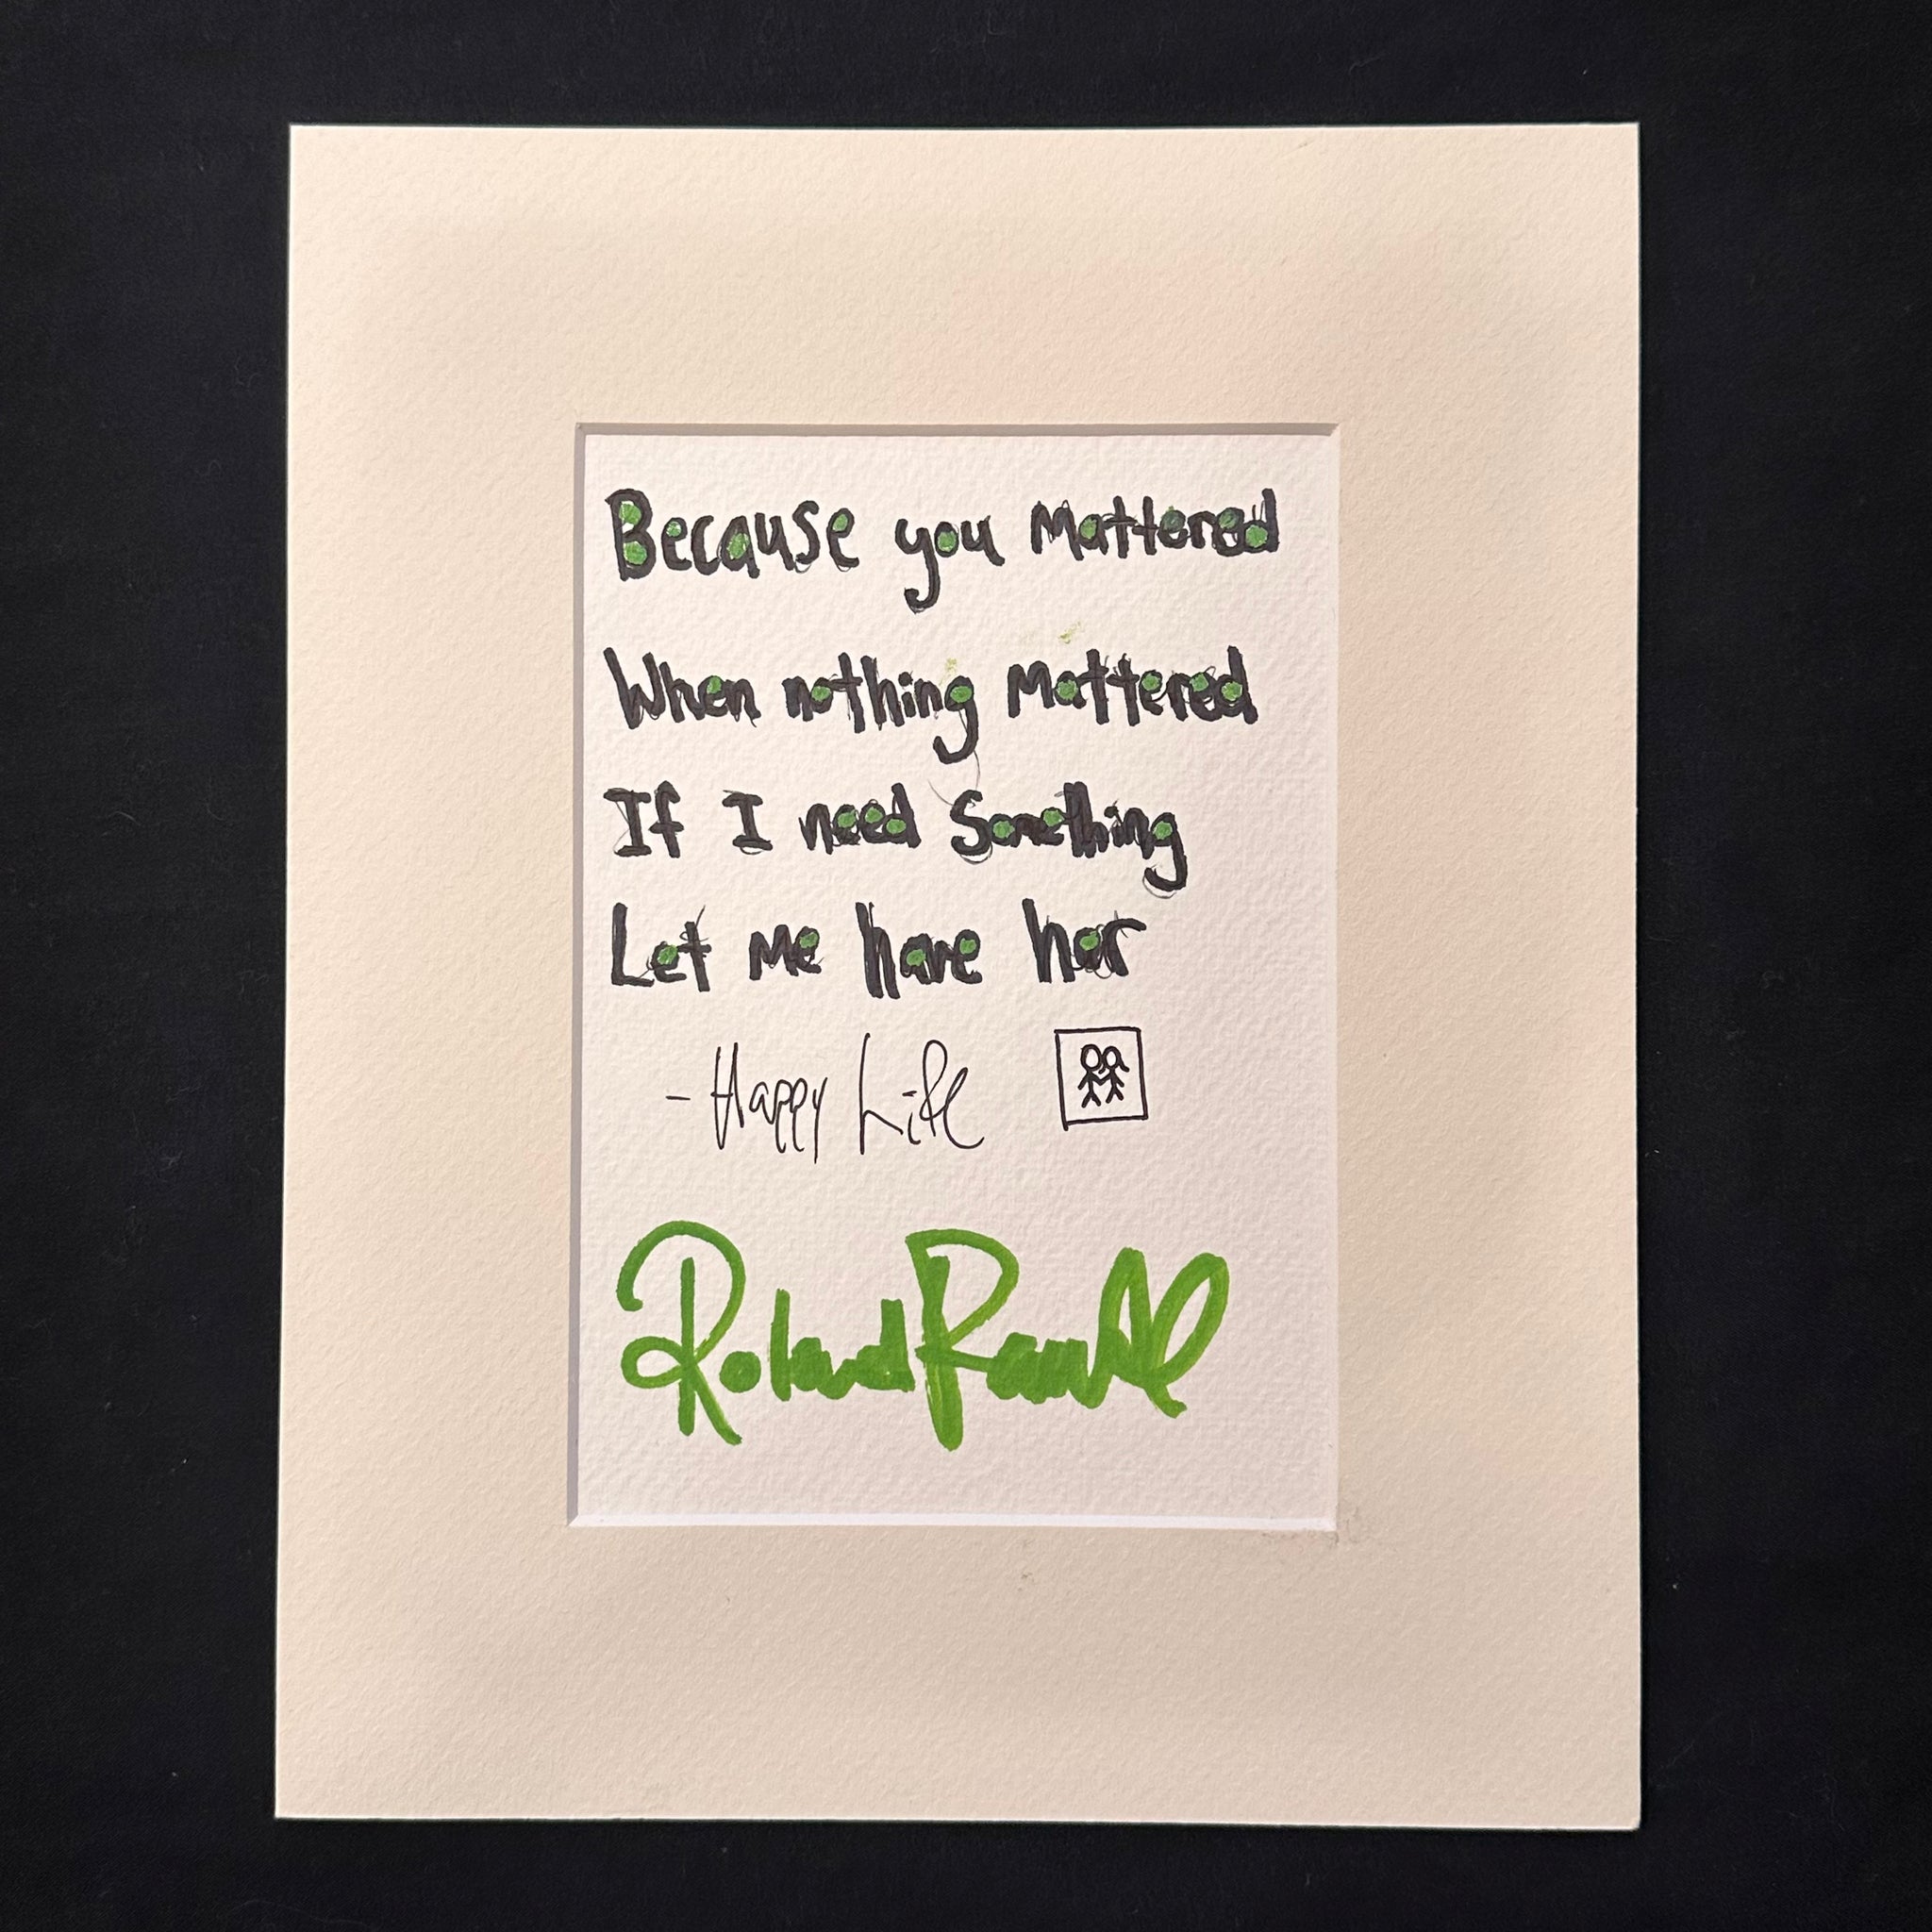 Because you Mattered
When nothing Mattered
If I need Something
Let Me have her
- Happy Life
Roland